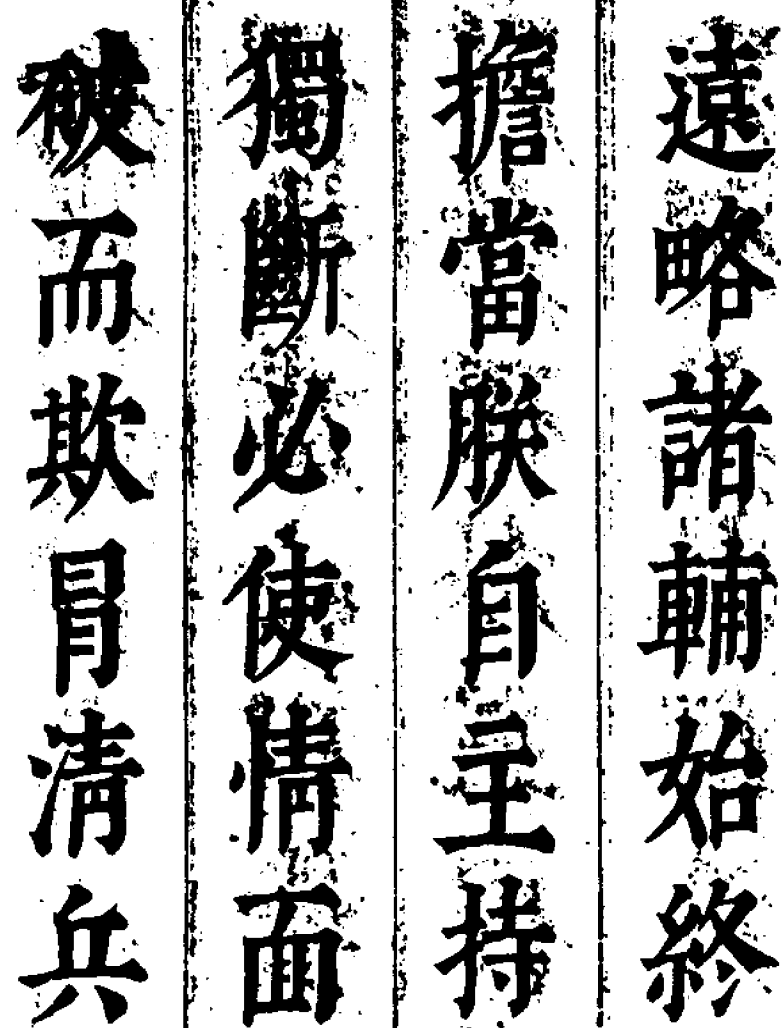 遠略諸輔始終
擔當朕自主持
獨斷必使情面
破而欺冒清兵